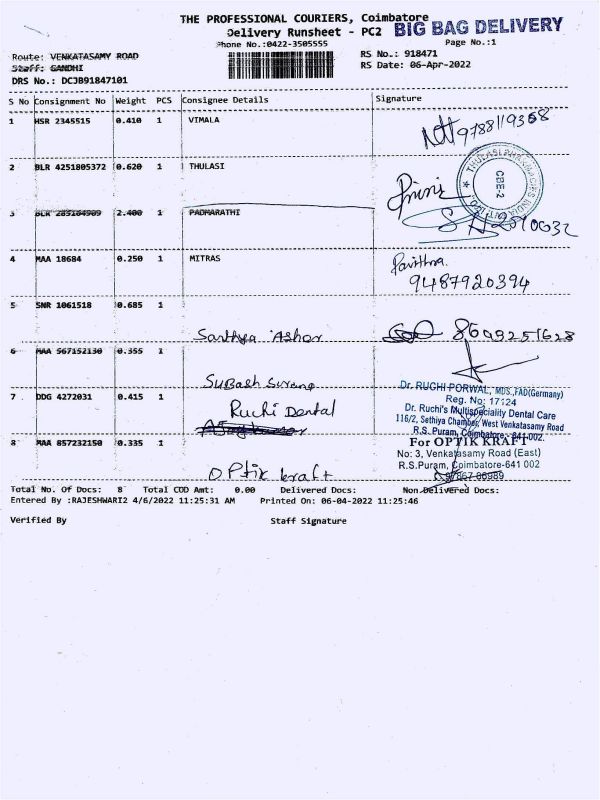 THE PROFESSIONAL COURIERS, Coimbatore
Delivery Runsheet - PC2 BIG BAG DELIVERY
Phone No.:0422-3505555 Page No.:1
Route: VENKATASAMY ROAD RS No.: 918471
Staff: GANDHI RS Date: 06-Apr-2022
DRS No.: DC3B91847101
S No Consignment No Weight PCS Consignee Details Signature
1 HSR 2345515 0.410 1 VIMALA 9788119368
2 BLR 4251805372 0.620 1 THULASI
THULASI PHARMACIES INDIA PVT LTD.
CBE-2
3 BLR 285184909 2.400 1 PADMARATHI
4 MAA 18684 0.250 1 MITRAS Pavithra
9487920394
5 SNR 1061518 0.685 1
Santhya Ashor 8609251628
6 MAA 567152130 0.355 1
Subash Surana
7 DDG 4272031 0.415 1 Ruchi Dental
Dr. RUCHI PORWAL, MDS.,FAD(Germany)
Reg. No: 17124
Dr. Ruchi's Multispeciality Dental Care
116/2, Sethiya Chamber, West Venkatasamy Road
R.S. Puram, Coimbatore- 641 002.
8 MAA 857232150 0.335 1
OPtik kraft
For OPTIK KRAFT
No: 3, Venkatasamy Road (East)
R.S.Puram, Coimbatore-641 002
Total No. Of Docs: 8 Total COD Amt: 0.00 Delivered Docs: Non Delivered Docs:
Entered By :RAJESHWARI2 4/6/2022 11:25:31 AM Printed On: 06-04-2022 11:25:46
Verified By Staff Signature